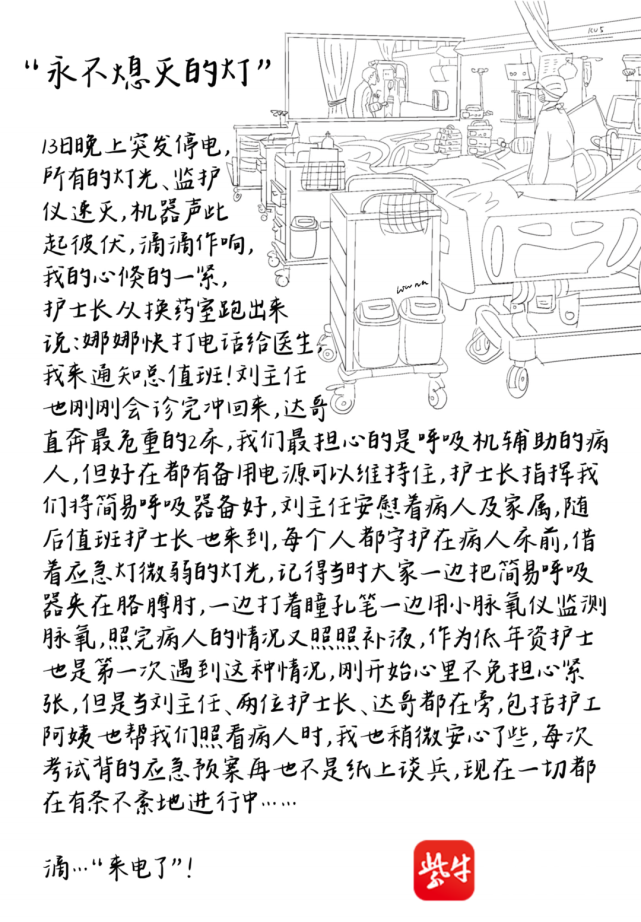 “永不熄灭的灯”
13日晚上突发停电，
所有的灯光、监护
仪速灭，机器声此
起彼伏，滴滴作响，
我的心倏的一紧，
护士长从换药室跑出来
说：娜娜快打电话给医生，
我来通知总值班！刘主任
也刚刚会诊完冲回来，达哥
直奔最危重的2床，我们最担心的是呼吸机辅助的病
人，但好在都有备用电源可以维持住，护士长指挥我
们将简易呼吸器备好，刘主任安慰着病人及家属，随
后值班护士长也来到，每个人都守护在病人床前，借
着应急灯微弱的灯光，记得当时大家一边把简易呼吸
器夹在胳膊肘，一边打着瞳孔笔一边用小脉氧仪监测
脉氧，照完病人的情况又照照补液，作为低年资护士
也是第一次遇到这种情况，刚开始心里不免担心紧
张，但是当刘主任、两位护士长、达哥都在旁，包括护工
阿姨也帮我们照看病人时，我也稍微安心了些，每次
考试背的应急预案再也不是纸上谈兵，现在一切都
在有条不紊地进行中……
滴…“来电了”！
紫牛